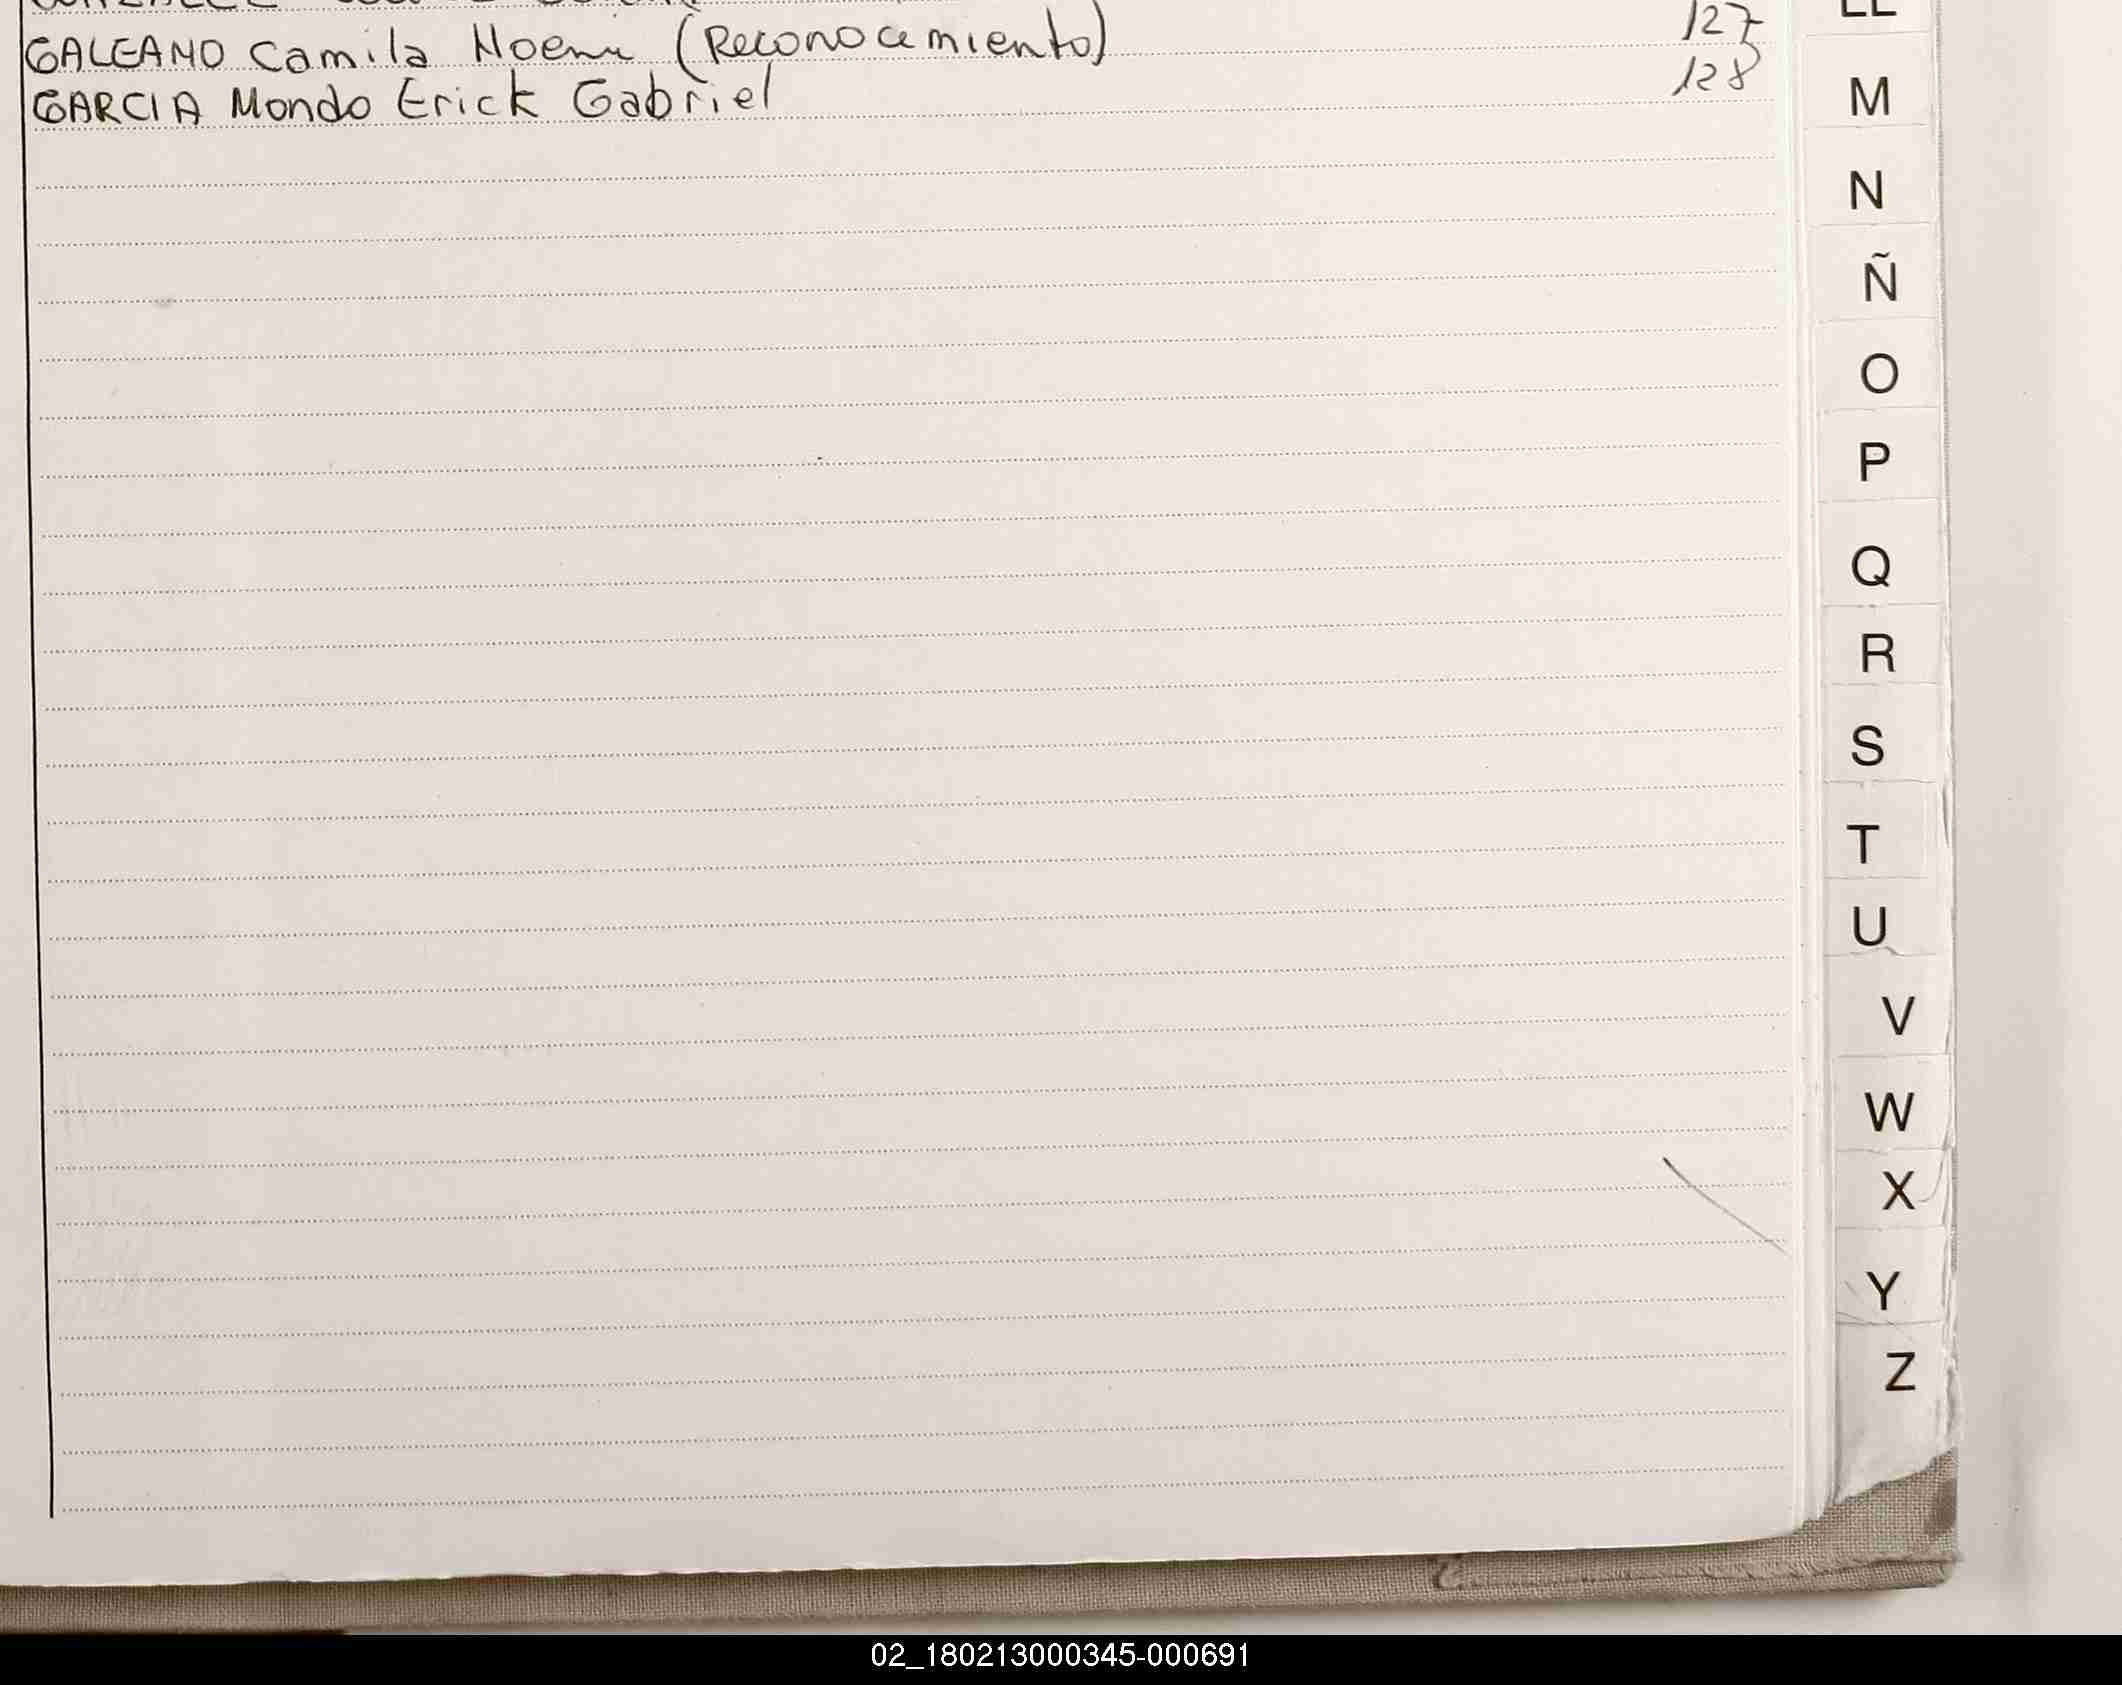 GALEANO Camila Noemi (Reconocimiento) 127
GARCIA Mondo Erick Gabriel 128
M
N
Ñ
O
P
Q
R
S
T
U
V
W
X
Y
Z
02_180213000345-000691